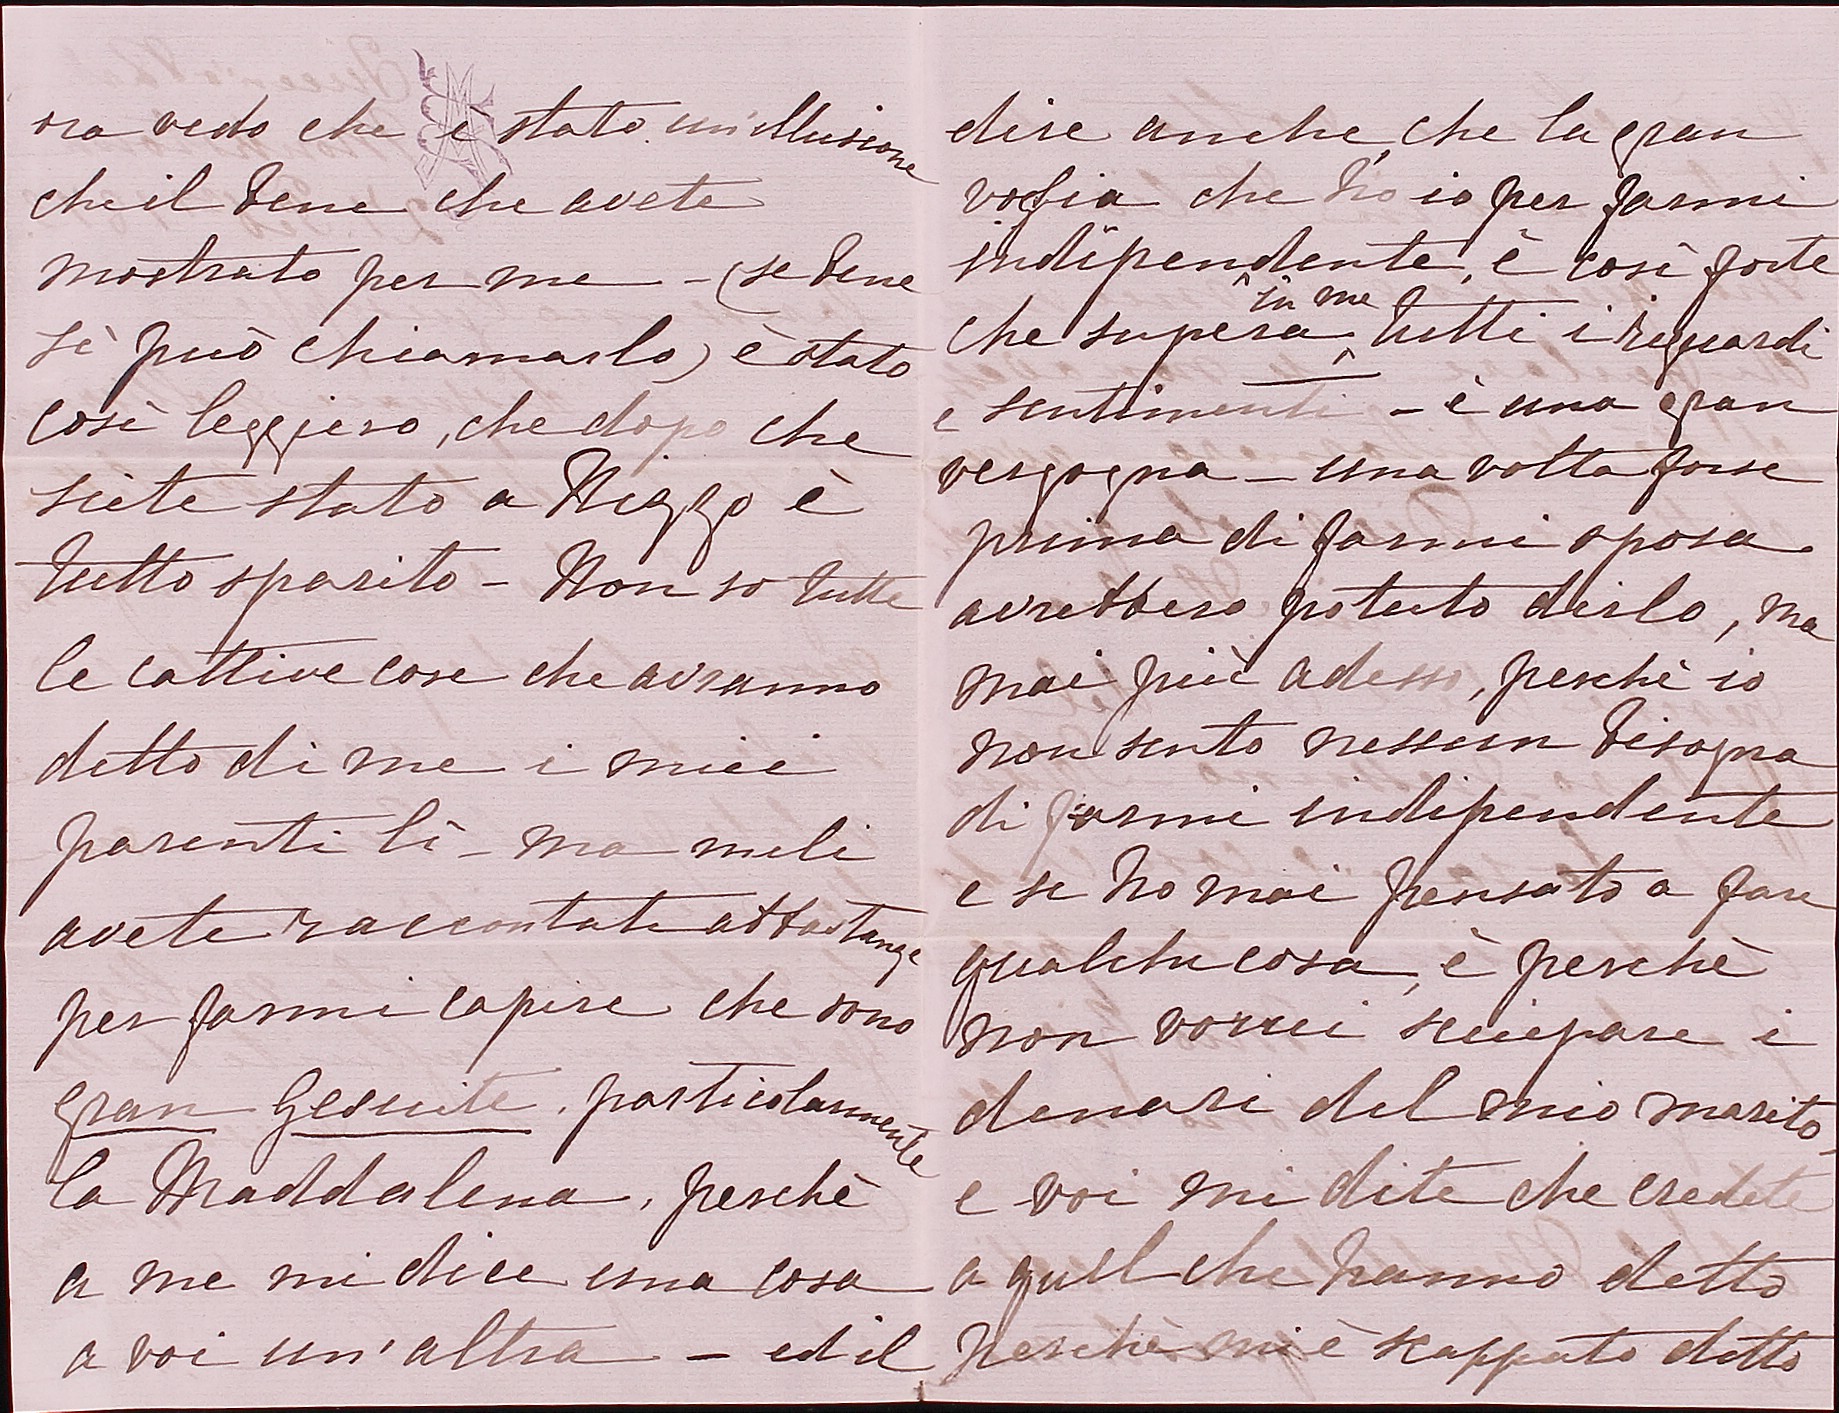 ora vedo che è stato un'illusione
che il bene che avete
mostrato per me - (se bene
sì può chiamarlo) è stato
così leggiero, che dopo che
siete stato a Nizza è
tutto sparito - Non so tutte
le cattive cose che avranno
detto di me i miei
parenti lì - ma me li
avete raccontate abbastanza
per farmi capire che sono
gran Gesuite, particolarmente
la Maddalena, perchè
a me mi dice una cosa
a voi un'altra - ed il
dire anche, che la gran
voglia che ho io per farmi
indipendente, è così forte
che supera in me tutti i riguardi
e sentimenti - è una gran
vergogna - una volta forse
prima di farmi sposa
avrebbero potuto dirlo, ma
mai più adesso, perchè io
non sento nessun bisogno
di farmi indipendente
e se ho mai pensato a fare
qualche cosa, è perchè
non vorrei sciupare i
denari del mio marito,
e voi mi dite che credete
a quel che hanno detto
perchè mi è scappato detto